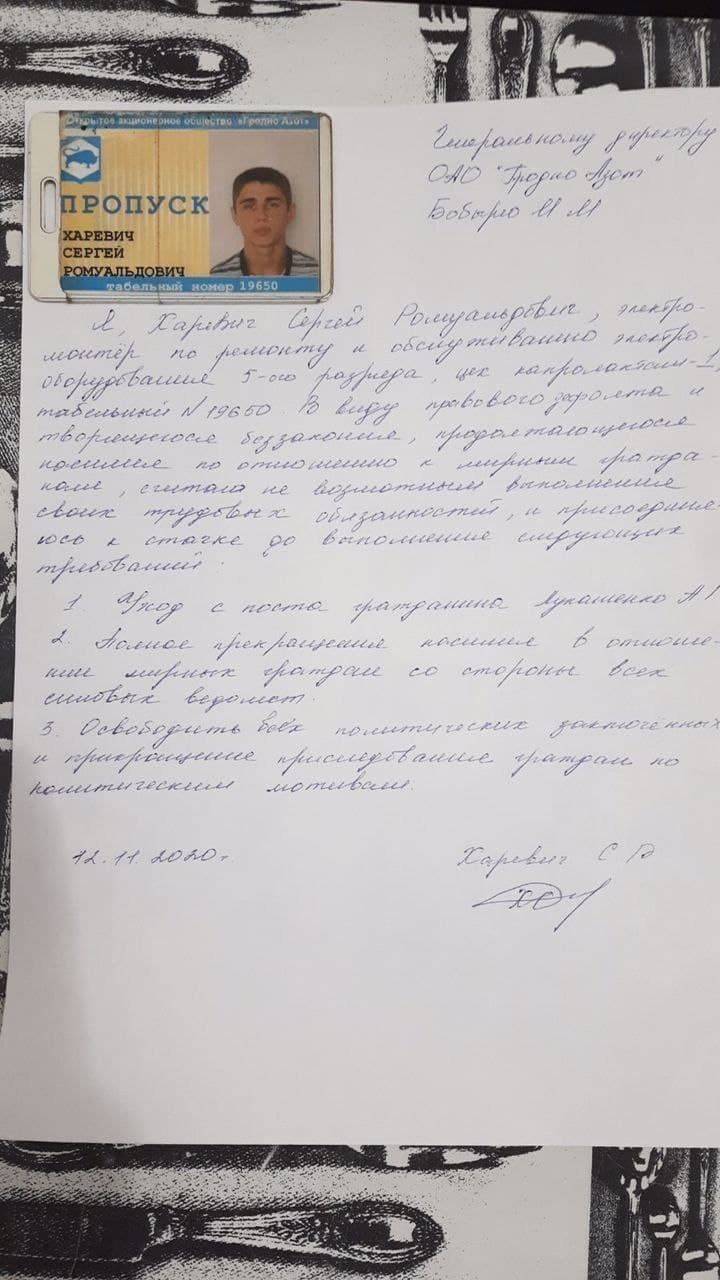 Открытое акционерное общество «Гродно Азот»
ПРОПУСК
ХАРЕВИЧ
СЕРГЕЙ
РОМУАЛЬДОВИЧ
табельный номер 19650
Генеральному директору
ОАО "Гродно Азот"
Бобырю И М
Я, Харевич Сергей Ромуальдович, электро-
монтёр по ремонту и обслуживанию электро-
оборудования 5-ого разряда, цех капролактам-1,
табельный N 19650. В виду правового дефолта и
творящегося беззакония, продолжающегося
насилия по отношению к мирным гражда-
нам, считаю не возможным выполнение
своих трудовых обязанностей, и присоединя-
юсь к стачке до выполнения следующих
требований.
1. Уход с поста гражданина Лукашенко А Г
2. Полное прекращения насилия в отноше-
нии мирных граждан со стороны всех
силовых ведомст.
3. Освободить всех политических заключённых
и прикращение приследования граждан по
политическим мотивам.
12.11.2020г.
Харевич С Р